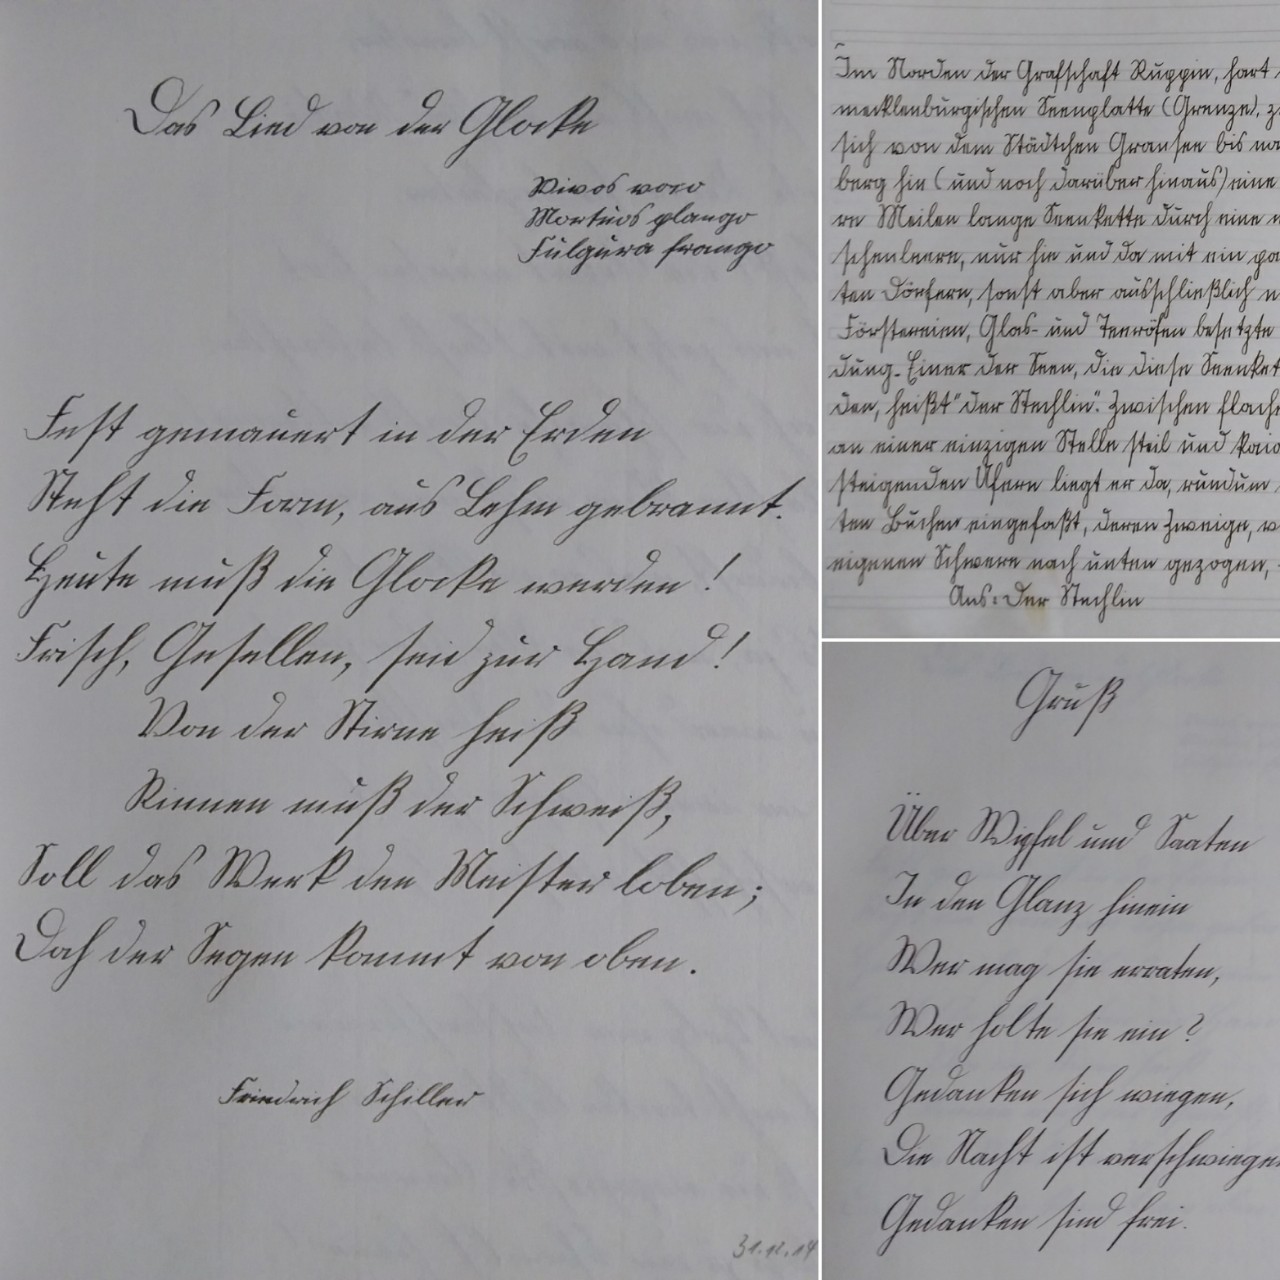 Das Lied von der Glocke
Vivos voco
Mortuos plango
Fulgura frango
Fest gemauert in der Erden
Steht die Form, aus Lehm gebrannt.
Heute muß die Glocke werden!
Frisch, Gesellen, seid zur Hand!
Von der Stirne heiß
Rinnen muß der Schweiß,
Soll das Werk den Meister loben;
Doch der Segen kommt von oben.
Friedrich Schiller
31.12.14
Im Norden der Grafschaft Ruppin, hart
mecklenburgischen Seenplatte (Grenze), z
sich von dem Städtchen Gransee bis na
berg hin (und noch darüber hinaus) eine
re Meilen lange Seenkette durch eine m
schenleere, nur hie und da mit ein pa
ten Dörfern, sonst aber ausschließlich m
Förstereien, Glas- und Teeröfen besetzte
dung. Einer der Seen, die diese Seenket
den, heißt "der Stechlin". Zwischen flache
an einer einzigen Stelle steil und kaia
steigenden Ufern liegt er da, rundum
ten Buchen eingefaßt, deren Zweige, v
eigenen Schwere nach unten gezogen,
Aus: Der Stechlin
Gruß
Über Wipfel und Saaten
In den Glanz hinein
Wer mag sie erraten,
Wer holte sie ein?
Gedanken sich wiegen,
Die Nacht ist verschwiegen
Gedanken sind frei.